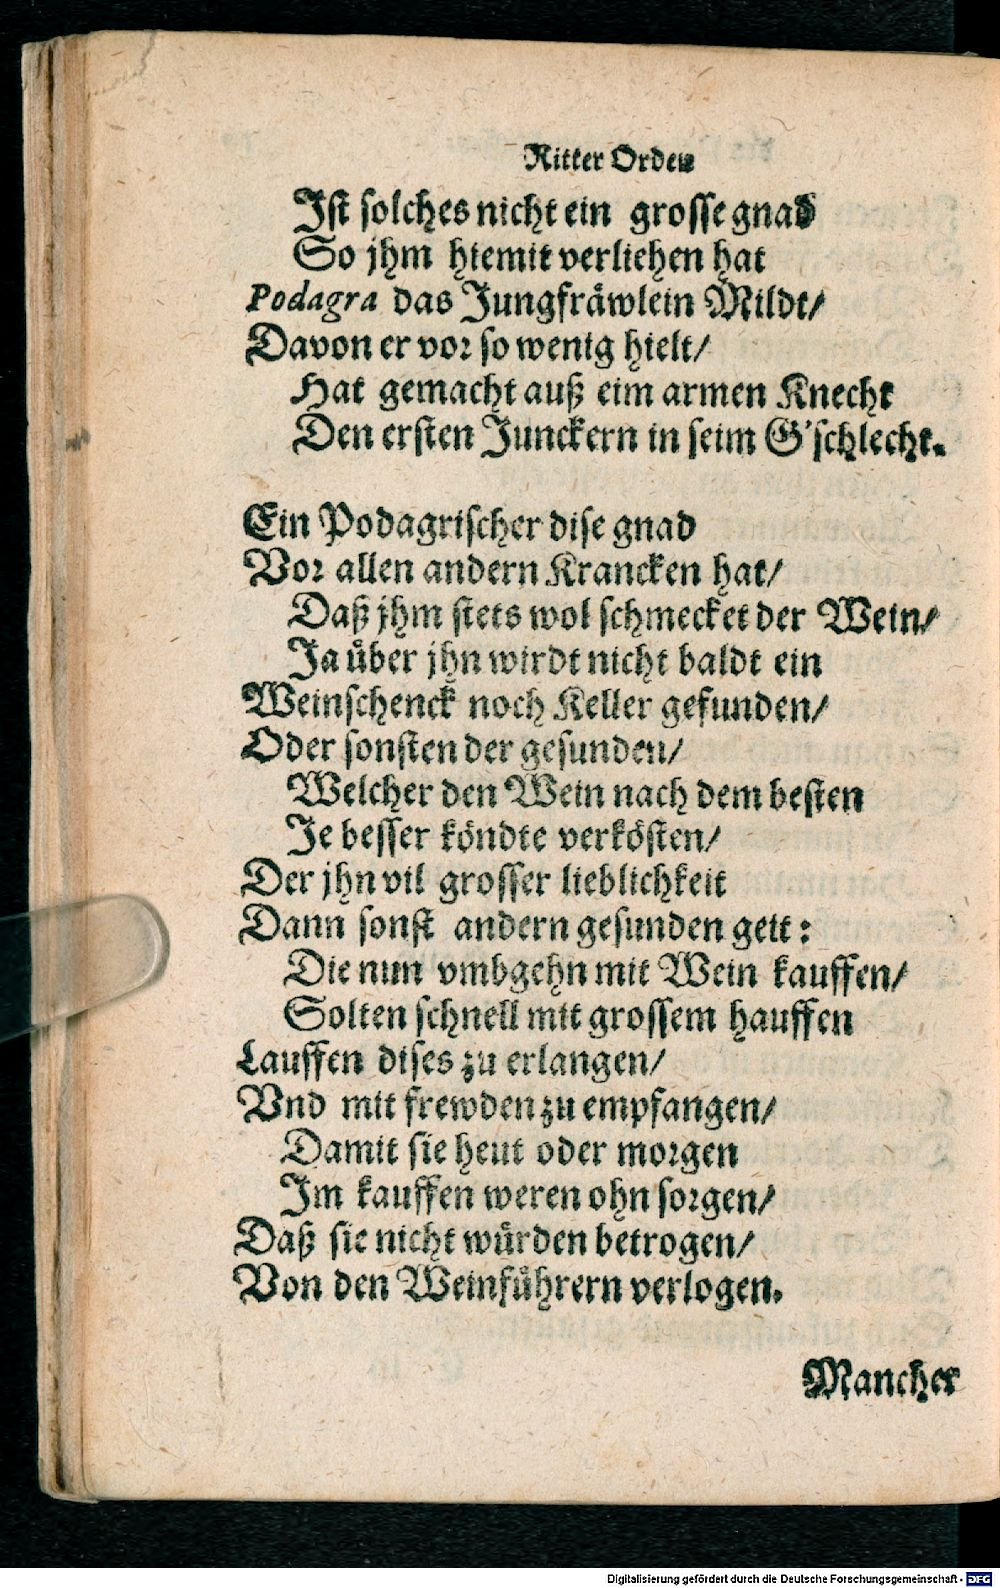 Ritter Orden
Ist solches nicht ein grosse gnad
So jhm hiemit verliehen hat
Podagra das Jungfräwlein Mildt/
Davon er vor so wenig hielt/
Hat gemacht auß eim armen Knecht
Den ersten Junckern in seim G'schlecht.
Ein Podagrischer dise gnad
Vor allen andern Krancken hat/
Daß jhm stets wol schmecket der Wein/
Ja über jhn wirdt nicht baldt ein
Weinschenck noch Keller gefunden/
Oder sonsten der gesunden/
Welcher den Wein nach dem besten
Je besser köndte verkösten/
Der jhn vil grosser lieblichkeit
Dann sonst andern gesunden geit:
Die nun vmbgehn mit Wein kauffen/
Solten schnell mit grossem hauffen
Lauffen dises zu erlangen/
Vnd mit frewden zu empfangen/
Damit sie heut oder morgen
Im kauffen weren ohn sorgen/
Daß sie nicht würden betrogen/
Von den Weinführern verlogen.
Mancher
Digitalisierung gefördert durch die Deutsche Forschungsgemeinschaft - DFG